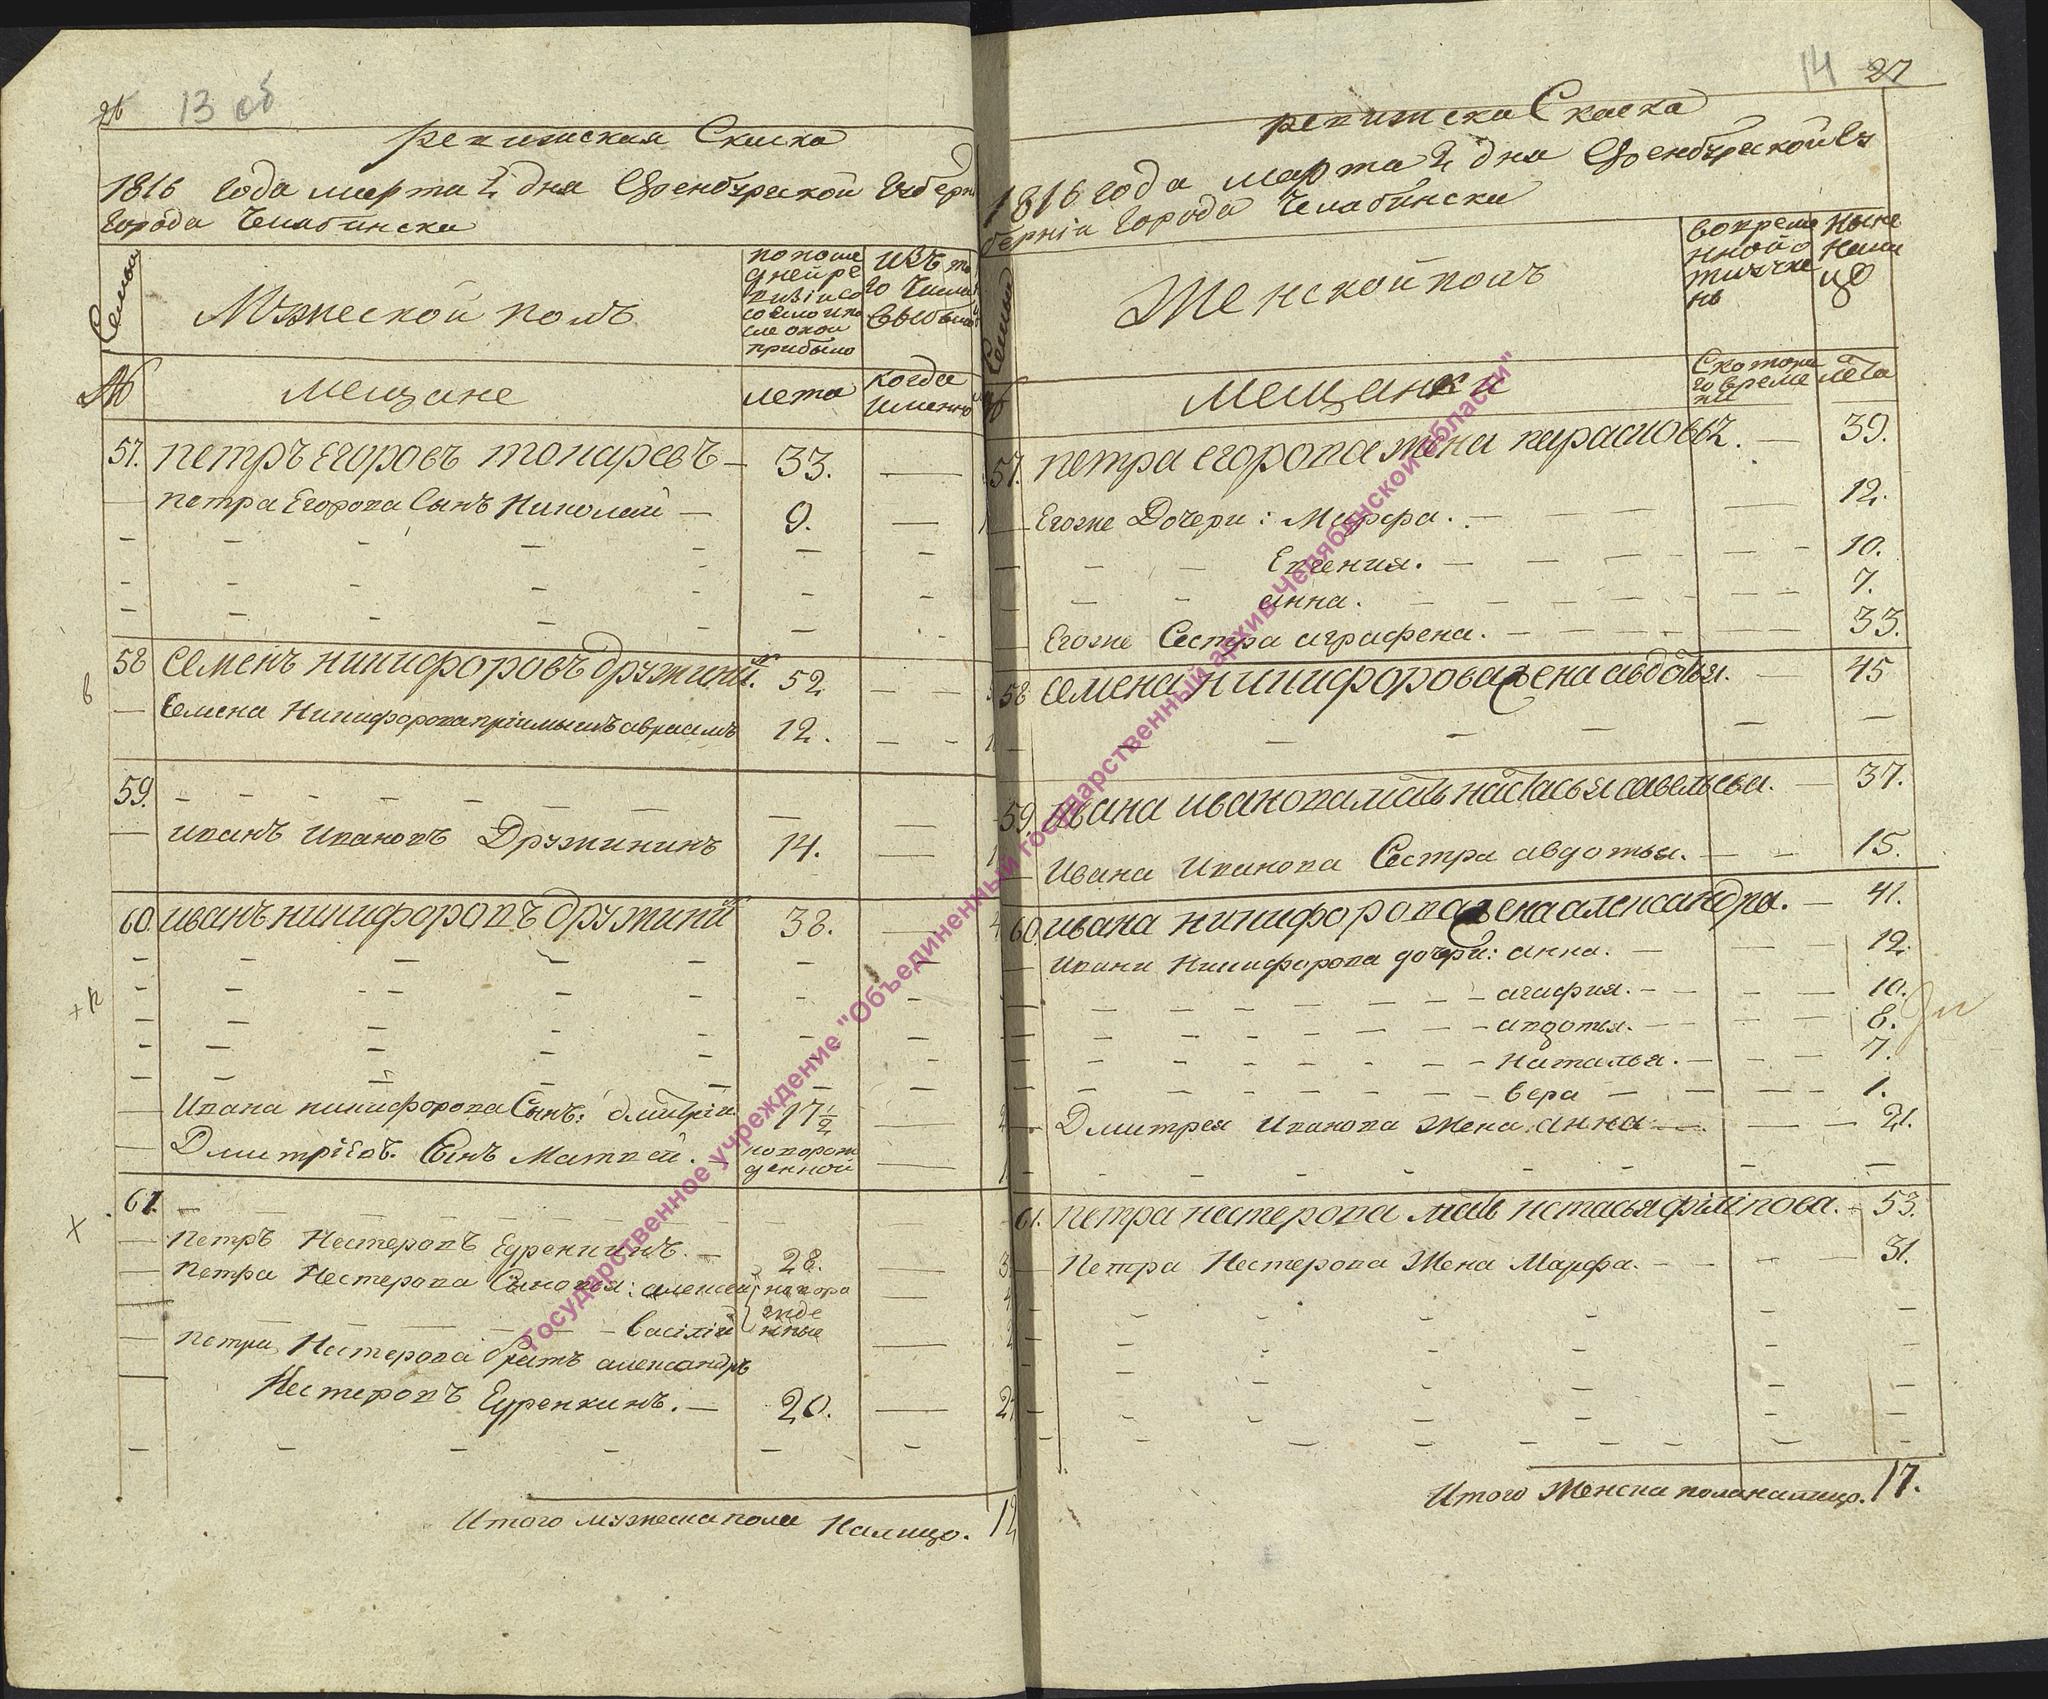 26 13 об
ревижская Скаска
1816 года марта 2 дня Оренбурской Губерн
города Челябинска
Семьи
Мужеской полъ
по после
дней ре
визіи со
стояло и по
сле оной
прибыло
изъ то
го числа
выбыло
№
мещане
лета
когда
имянно
57. петръ егоровъ токаревъ — 33. —
петра Егорова Сынъ Николай — 9. —
58 семенъ никифоровъ дружининъ. 52
Семена Никифорова пріимышъ авраамъ 12.
59.
иванъ Ивановъ Дружининъ 14. —
60. иванъ никифоровъ дружининъ 38. —
Ивана никифорова Сынъ: дмитріи. 17½ —
Дмитріевъ. Сынъ Матвей. — новорож
денной —
61.
Петръ Нестеровъ Едренкинъ. — 28. —
Петра Нестерова Сыновья: алексей новоро
жде
Василій нные
Петра Нестерова братъ александръ
Нестеровъ Едренкинъ. — 20. — 2
Итого мужеска пола налицо. 12
14 27
ревижска Скаска
1816 года марта 2 дня Оренбурской Гу
берніи Города Челябинска
Семьи
Женской полъ
во време
нной о
тлучке
ныне
нали
цо
№
мещанки
Скотора
го време
ни
лета
57. петра егорова жена парасковья. — 39.
Егоже Дочери: Марфа. — 12.
Евгения. — 10.
анна. — 7.
Егоже Сестра аграфена. — 33.
58 семена никифорова жена авдотья. — 45
59. ивана иванова мать настасья савельева. — 37.
Ивана Иванова Сестра авдотья. — 15.
60. ивана никифорова жена александра. — 41.
Ивана Никифорова дочери: анна. — 12.
агафия. — 10.
авдотья. — 8.
наталья. — 7.
вера — 1.
Дмитрея Иванова Жена: анна — 21.
61. петра нестерова мать настасья филіпова. — 53.
Петра Нестерова Жена Марфа. — 31.
Итого Женска пола налицо. 17.
Государственное учреждение "Объединенный государственный архив Челябинской области"